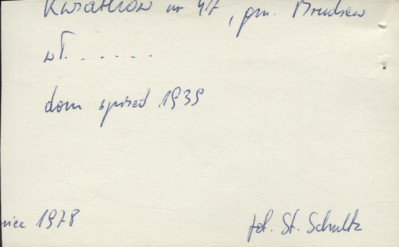 Kwiatków nr 47, gm. Brudzew
wł. . . . . .
dom sprzed 1939
niec 1978
fot. St. Schultz